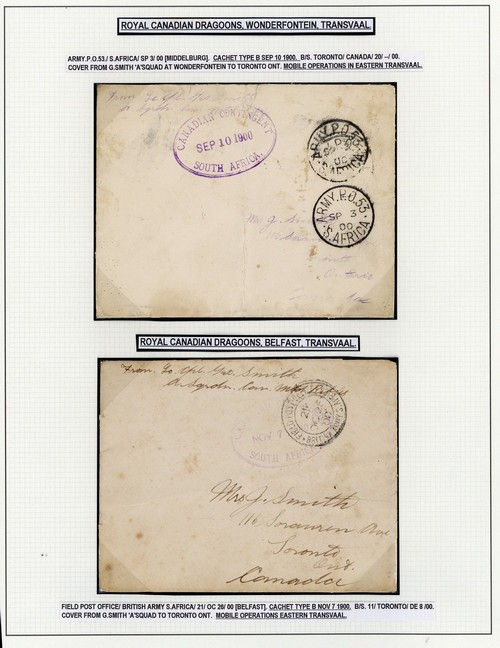 ROYAL CANADIAN DRAGOONS, WONDERFONTEIN, TRANSVAAL.
ARMY.P.O.53./ S.AFRICA/ SP 3/ 00 [MIDDELBURG]. CACHET TYPE B SEP 10 1900. B/S. TORONTO/ CANADA/ 20/ --/ 00.
COVER FROM G.SMITH 'A'SQUAD AT WONDERFONTEIN TO TORONTO ONT. MOBILE OPERATIONS IN EASTERN TRANSVAAL.
CANADIAN CONTINGENT
SEP 10 1900
SOUTH AFRICA.
ARMY.P.O.53
SP
00
S.AFRICA
ARMY.P.O.53
SP 3
00
S.AFRICA
Mr J.
Ontario
ROYAL CANADIAN DRAGOONS, BELFAST, TRANSVAAL.
From Smith
FIELD POST OFFICE
BRITISH ARMY
NOV 7
SOUTH AFRICA
Mrs J. Smith
116 Sorauren Ave
Toronto
Ont.
Canada
FIELD POST OFFICE/ BRITISH ARMY S.AFRICA/ 21/ OC 26/ 00 [BELFAST]. CACHET TYPE B NOV 7 1900, B/S. 11/ TORONTO/ DE 8 /00.
COVER FROM G.SMITH 'A'SQUAD TO TORONTO ONT. MOBILE OPERATIONS EASTERN TRANSVAAL.